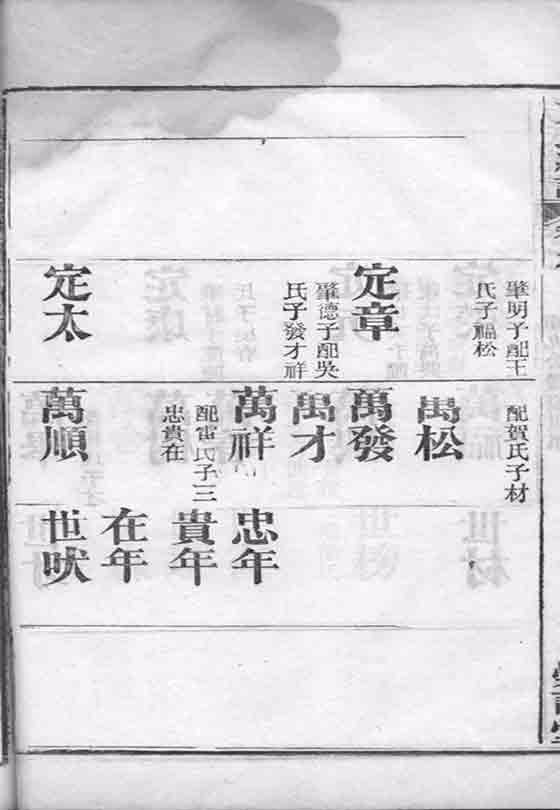 肇明子配王
氏子福松
定章
肇德子配吳
氏子發才祥
定太
配賀氏子材
萬松
萬發
萬才
萬祥
配雷氏子三
忠貴在
萬順
忠年
貴年
在年
世吠